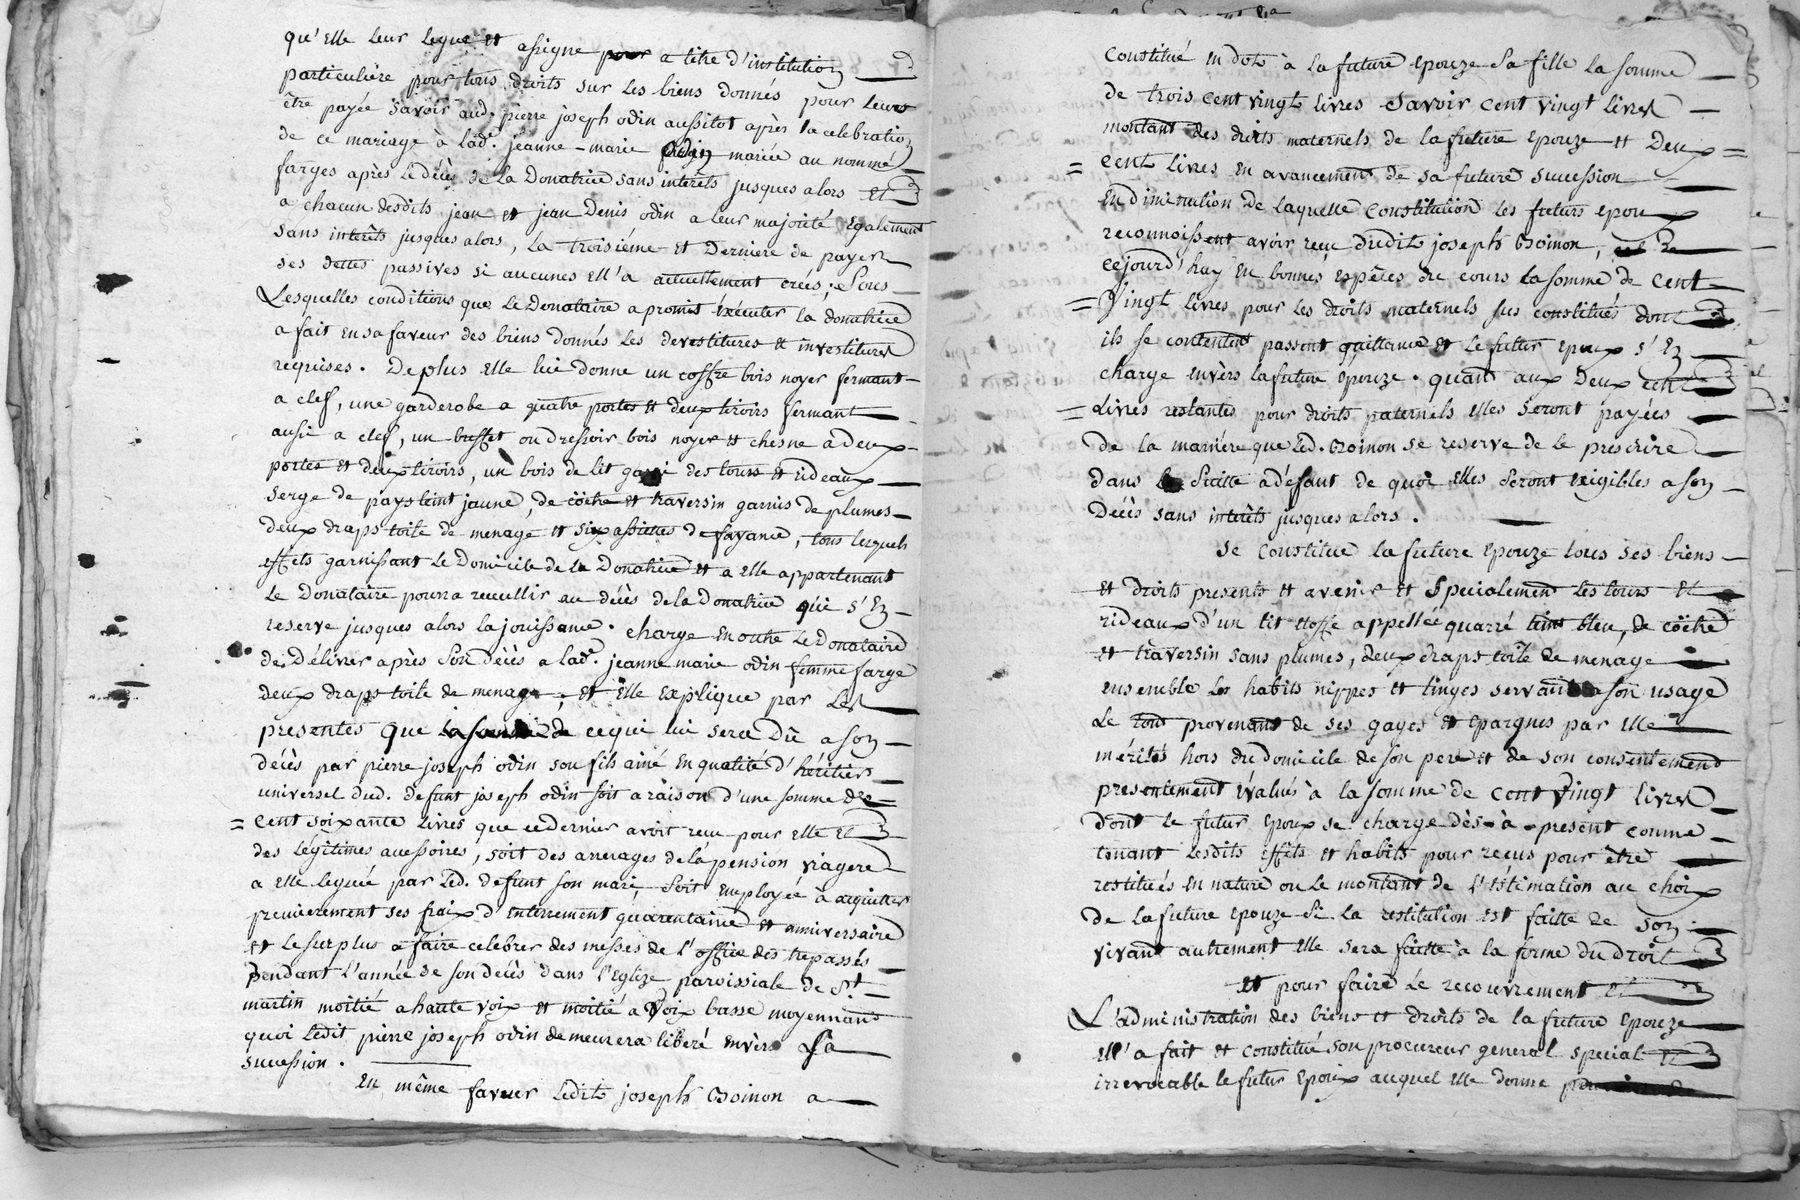 qu'elle leur legue et assigne pour a titre d'institution
particuliére pour tous droits sur les biens donnés pour leurs
être payée savoir aud. pierre joseph odin aussitot après la celebration
de ce mariage à lad.e jeanne-marie odin mariée au nommé
farges après le décès de la Donatrice sans interêts jusques alors et
a chacun desdits jean et jean Denis odin a leur majorité également
sans interêts jusques alors, la troisiéme et Derniere de payer
ses dettes passives si aucunes ell'a actuellement créés; sous
Lesquelles conditions que le Donataire a promis éxécuter la donatrice
a fait en sa faveur des biens donnés les devestitures et investitures
requises. De plus elle lui donne un coffre bois noyer fermant
a clef, une garderobe a quatre portes et deux tiroirs fermant
aussi a clef, un buffet ou dressoir bois noyer et chesne a deux
portes et deux tiroirs, un bois de lit garni des tours et rideaux
serge de pays teint jaune, de cöitre et traversin garnis de plumes
deux draps toile de menage et six assiettes de fayance, tous lesquels
effets garnissant le Domicile de la Donatrice et a elle appartenant
le Donataire pourra recuellir au décès de la Donatrice qui s'en
reserve jusques alors la jouissance. charge en outre le Donataire
de Délivrer après son décès a lad.e jeanne marie odin femme farge
deux draps toile de menage; et elle explique par les
presentes que la somme de ce qui lui sera dû a son
décès par pierre joseph odin son fils ainé en qualité d'héritier
universel dud. defunt joseph odin soit a raison d'une somme de
= cent soixante livres que ce dernier avoit recu pour elle et
des légitimes accessoires, soit des arrerages de la pension viagere
a elle leguée par led. defunt son mari, soit employée à acquitter
premierement ses fraix d'enterrement quarentaine et anniversaire
et le surplus a faire celebrer des messes de l'office des trepassés
pendant l'année de son décès dans l'Eglize paroissiale de St
martin moitié a haute voix et moitié a voix basse moyennant
quoi ledit pierre joseph odin demeurera libéré envèrs sa
succession.
En même faveur ledit joseph Goinon a
constitué en dot à la future epouze sa fille la somme
de trois cent vingt livres savoir cent vingt livres
montant des droits maternels de la future epouze et Deux =
= cent livres en avancement de sa future succession
En diminution de laquelle constitution les futurs epoux
reconnoissent avoir recu dudit joseph Goinon,
cejourd'huy en bonnes espèces du cours la somme de cent
= vingt livres pour les droits maternels sus constitués dont
ils se contentent passent quittance et le futur epoux s'en
charge envèrs la future epouze. quant aux Deux cent
= Livres restantes pour droits paternels elles seront payées
de la maniere que led. Goinon se reserve de le prescrire
dans la suitte a défaut de quoi elles seront exigibles a son
Décès sans interêts jusques alors.
se constitue la future epouze tous ses biens
et droits presents et avenir et specialement les tours et
rideaux d'un lit etoffe appellée quarré teint bleu, de cöitre
et traversin sans plumes, deux draps toile de menage
ensemble les habits nippes et linges servant a son usage
Le tout provenant de ses gages et epargnes par elle
mérités hors du domicile de son pere et de son consentement
presentement évalués à la somme de cent vingt livres
dont le futur epoux se charge dès-à-present comme
tenant lesdits effets et habits pour recus pour être
restitués en nature ou le montant de l'éstimation au choix
de la future epouze si la restitution est faitte de son
vivant autrement elle sera faitte à la forme du droit
et pour faire le recouvrement et
L'administration des biens et droits de la future epouze
ell'a fait et constitué son procureur general special et
irrevocable le futur epoux auquel elle donne